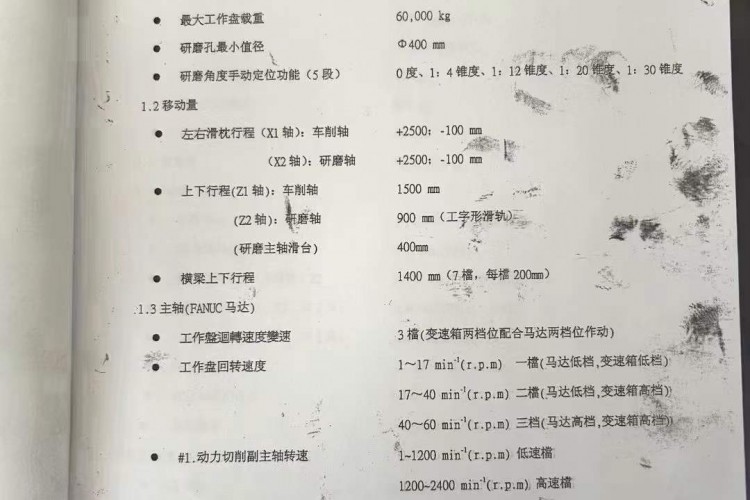 ● 最大工作盘载重 60,000 kg
● 研磨孔最小值径 Φ400 mm
● 研磨角度手动定位功能（5段） 0度、1：4锥度、1：12锥度、1：20锥度、1：30锥度
1.2移动量
● 左右滑枕行程（X1轴）：车削轴 +2500；-100 mm
（X2轴）：研磨轴 +2500；-100 mm
● 上下行程(Z1轴)：车削轴 1500 mm
(Z2轴)：研磨轴 900 mm（工字形滑轨）
(研磨主轴滑台) 400mm
● 横梁上下行程 1400 mm（7檔，每檔200mm）
1.3主轴(FANUC马达)
● 工作盤迴轉速度變速 3檔(变速箱两档位配合马达两档位作动)
● 工作盘回转速度 1～17 min⁻¹(r.p.m) 一檔(马达低档,变速箱低档)
17～40 min⁻¹(r.p.m) 二檔(马达低档,变速箱高档)
40～60 min⁻¹(r.p.m) 三档(马达高档,变速箱高档)
● #1.动力切削副主轴转速 1~1200 min⁻¹(r.p.m) 低速檔
1200~2400 min⁻¹(r.p.m) 高速檔